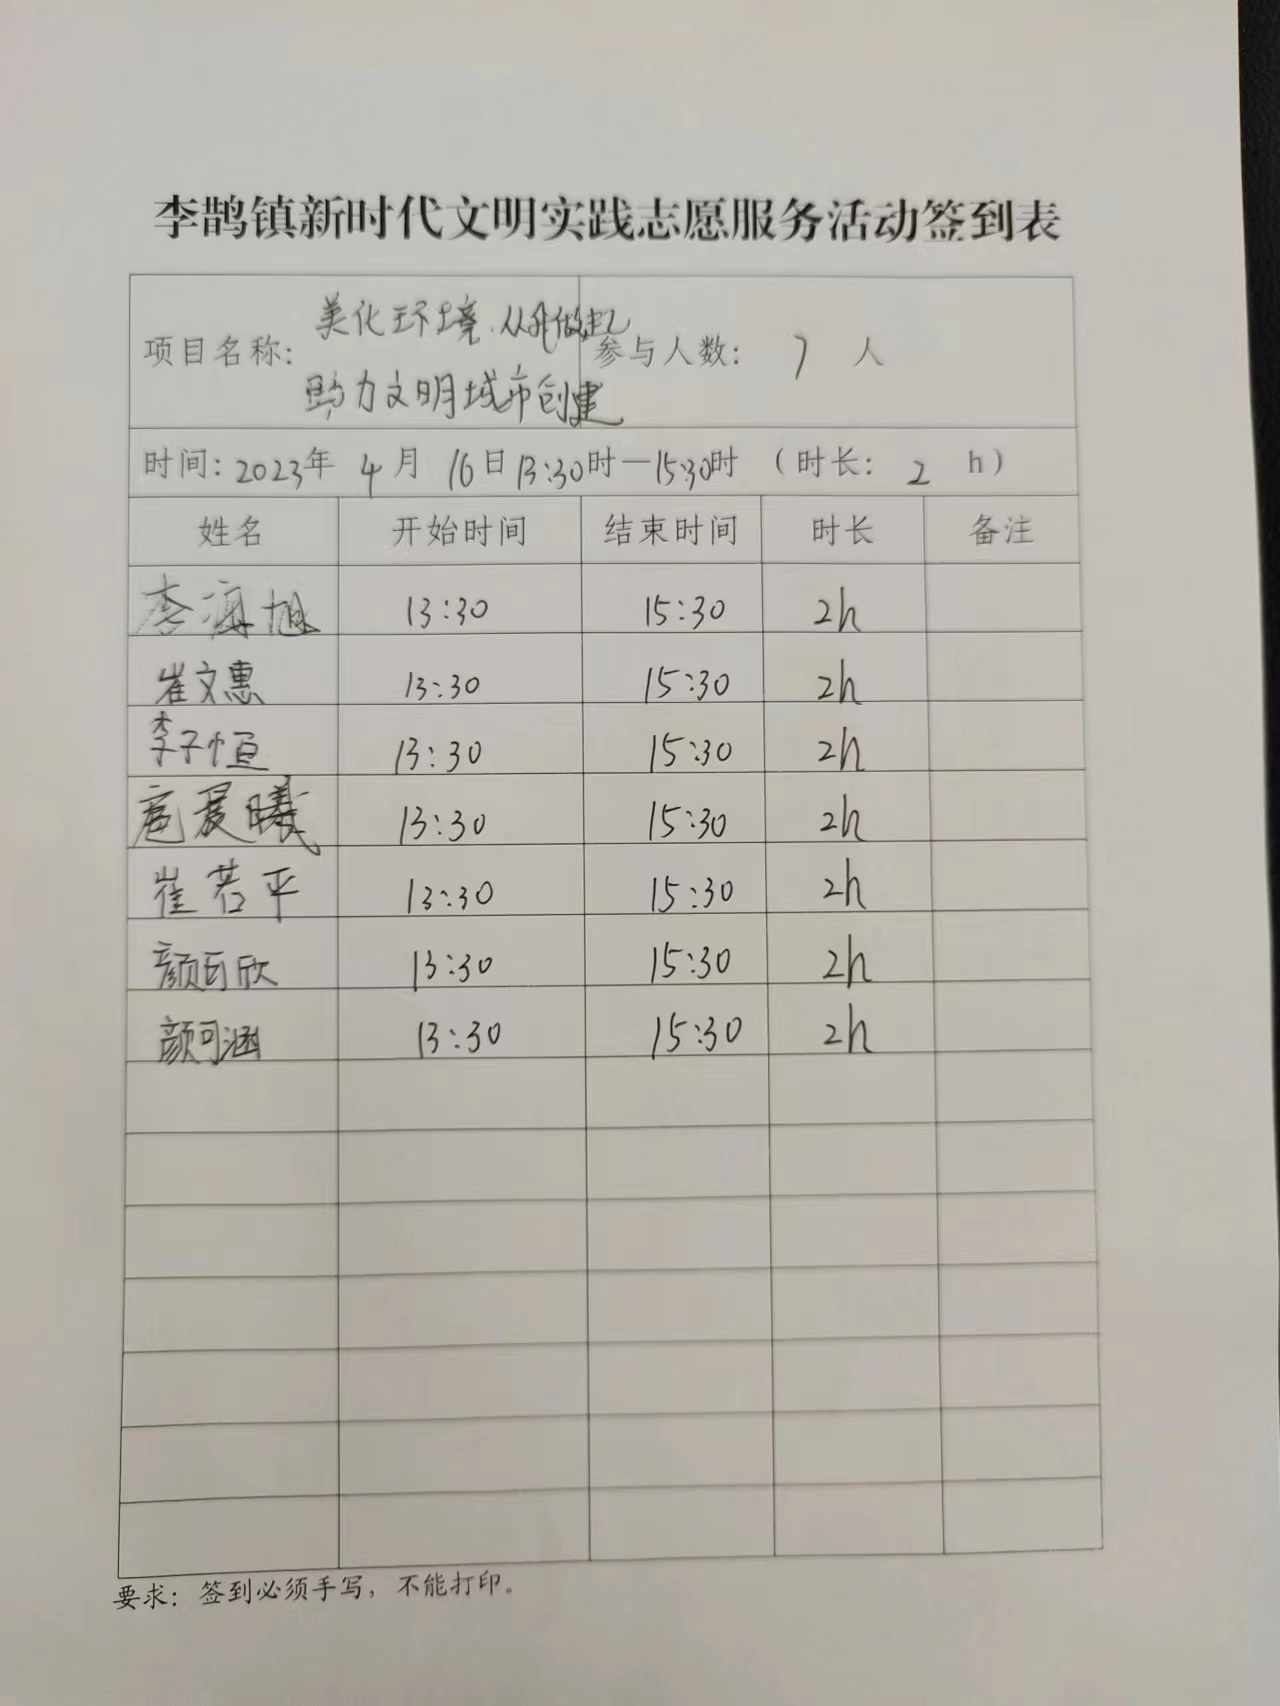 李鹊镇新时代文明实践志愿服务活动签到表
项目名称: 美化环境.从我做起
助力文明城市创建
参与人数: 7 人
时间: 2023年 4月 16日 13:30时—15:30时 (时长: 2 h)
姓名 开始时间 结束时间 时长 备注
李海旭 13:30 15:30 2h
崔文惠 13:30 15:30 2h
李子恒 13:30 15:30 2h
晨曦 13:30 15:30 2h
崔若平 13:30 15:30 2h
颜可欣 13:30 15:30 2h
颜可涵 13:30 15:30 2h
要求: 签到必须手写, 不能打印。